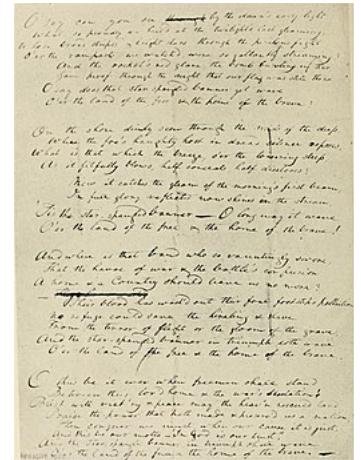 O say can you see ~~through~~ by the dawn's early light
What so proudly we hail'd at the twilight's last gleaming,
Whose broad stripes & bright stars through the perilous fight
O'er the ramparts we watch'd, were so gallantly streaming?
And the rocket's red glare, the bomb bursting in air,
Gave proof through the night that our flag was still there
O say does that star-spangled banner yet wave
O'er the land of the free & the home of the brave?
On the shore dimly seen through the mists of the deep,
Where the foe's haughty host in dread silence reposes,
What is that which the breeze, o'er the towering steep,
As it fitfully blows, half conceals half discloses?
Now it catches the gleam of the morning's first beam,
In full glory reflected now shines in the stream,
'Tis the star-spangled banner — O long may it wave
O'er the land of the free & the home of the brave!
And where is that band who so vauntingly swore,
That the havoc of war & the battle's confusion
A home & a Country should leave us no more?
Their blood has wash'd out their foul footsteps pollution
No refuge could save the hireling & slave
From the terror of flight or the gloom of the grave,
And the star-spangled banner in triumph doth wave
O'er the land of the free & the home of the brave.
O thus be it ever when freemen shall stand
Between their lov'd home & the war's desolation!
Blest with vict'ry & peace may the heav'n rescued land
Praise the power that hath made & preserv'd us a nation!
Then conquer we must, when our cause it is just,
And this be our motto — "In God is our trust,"
And the star-spangled banner in triumph shall wave
O'er the land of the free & the home of the brave. —